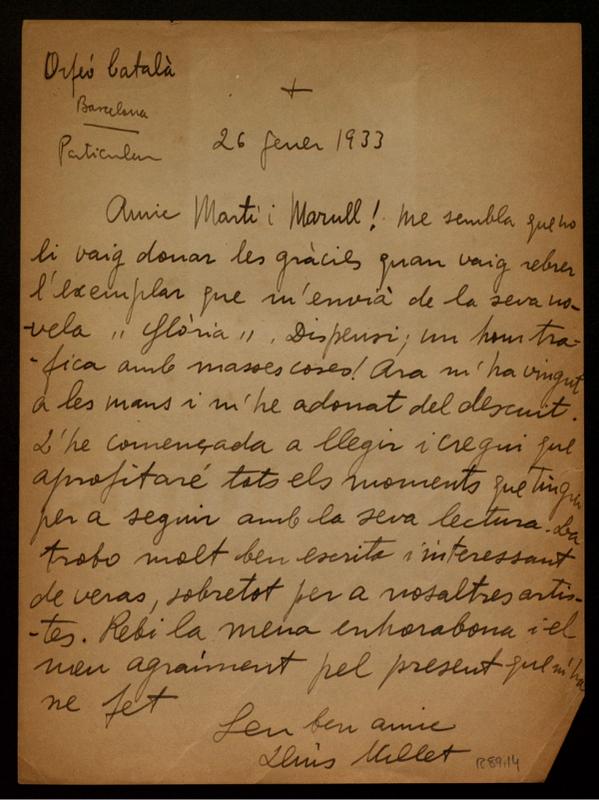 Orfeó Català
Barcelona
Particular
+
26 gener 1933
Amic Martí i Marull! Me sembla que no
li vaig donar les gràcies quan vaig rebrer
l'exemplar que m'envià de la seva no-
-vela ,, Glòria ,, . Dispensi; un hom tra-
-fica amb masses coses! Ara m'ha vingut
a les mans i m'he adonat del descuit.
L'he començada a llegir i cregui que
aprofitaré tots els moments que tingui
per a seguir amb la seva lectura. La
trobo molt ben escrita i interessant
de veras, sobretot per a nosaltres artis-
-tes. Rebi la meua enhorabona i el
meu agraiment pel present que m'ha
ne fet
Seu ben amic
Lluís Millet
R 89.14